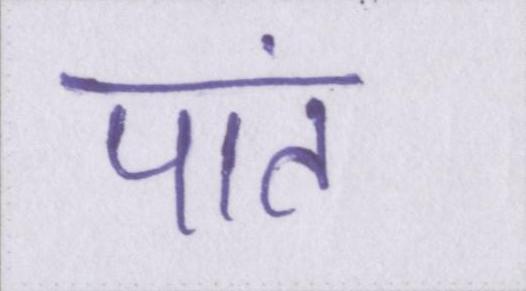 पांत